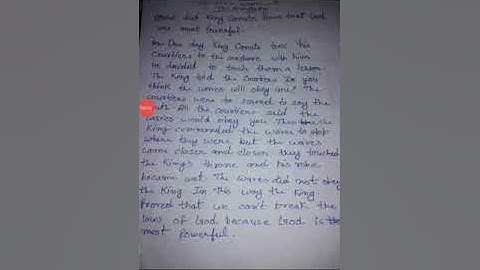 How did King Canute prove that God
was most powerful.
Ans One day King Canute took his
Courtiers to the seashore with him
he decided to teach them a lesson.
The King told the Courtiers Do you
think the waves will obey you? The
courtiers were to scared to say the
All the courtiers said the
waves would obey you. Then the
King commanded the waves to stop
where they were but the waves
came closer and closer they touched
the King's throne and his robe
became wet. The waves did not obey
the King In this way the King
Proved that we can't break the
laws of God because God is the
most powerful.